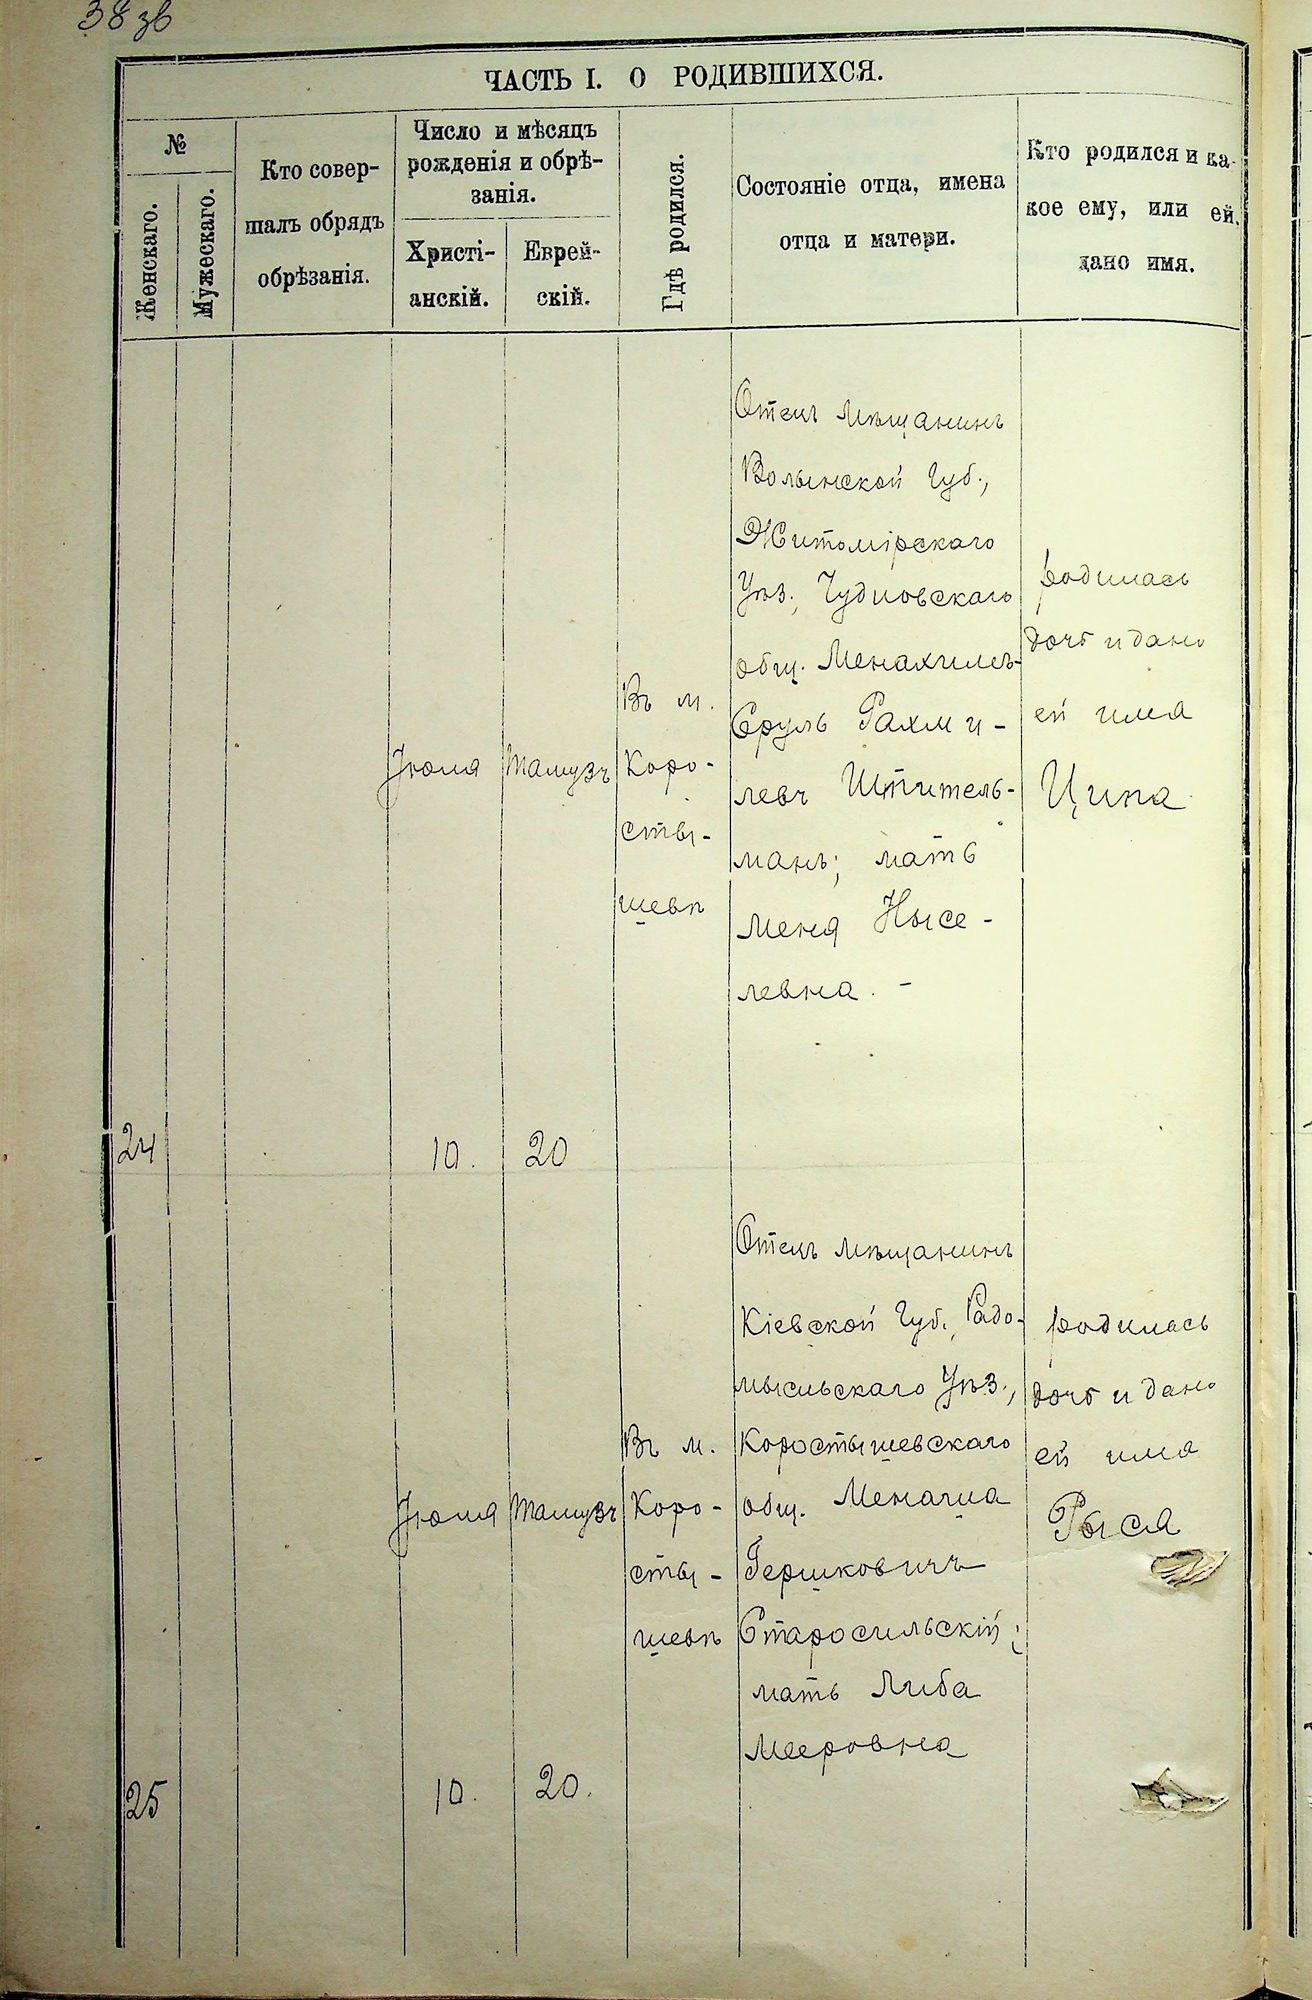 38 зв
ЧАСТЬ I. О РОДИВШИХСЯ.
№
Женскаго.
Мужескаго.
Кто совер-
шалъ обрядъ
обрѣзанія.
Число и мѣсяцъ
рожденія и обрѣ-
занія.
Христі-
анскій.
Еврей-
скій.
Гдѣ родился.
Состояніе отца, имена
отца и матери.
Кто родился и ка-
кое ему, или ей,
дано имя.
24
Іюля
10.
Тамузъ
20
Въ м.
Коро-
сты-
шевѣ
Отецъ мѣщанинъ
Волынской Губ.,
Житомірскаго
Уѣз., Чудновскаго
общ. Менахимъ-
Сруль Рахми-
левъ Шпитель-
манъ; мать
Меня Нысе-
левна. -
родилась
дочь и дано
ей имя
Ципа
25
Іюля
10.
Тамузъ
20.
Въ м.
Коро-
сты-
шевѣ
Отецъ мѣщанинъ
Кіевской Губ., Радо-
мысльскаго Уѣз.,
Коростышевскаго
общ.
Гершковичъ
Старосильскій;
мать Либа
Мееровна
родилась
дочь и дано
ей имя
Рыся